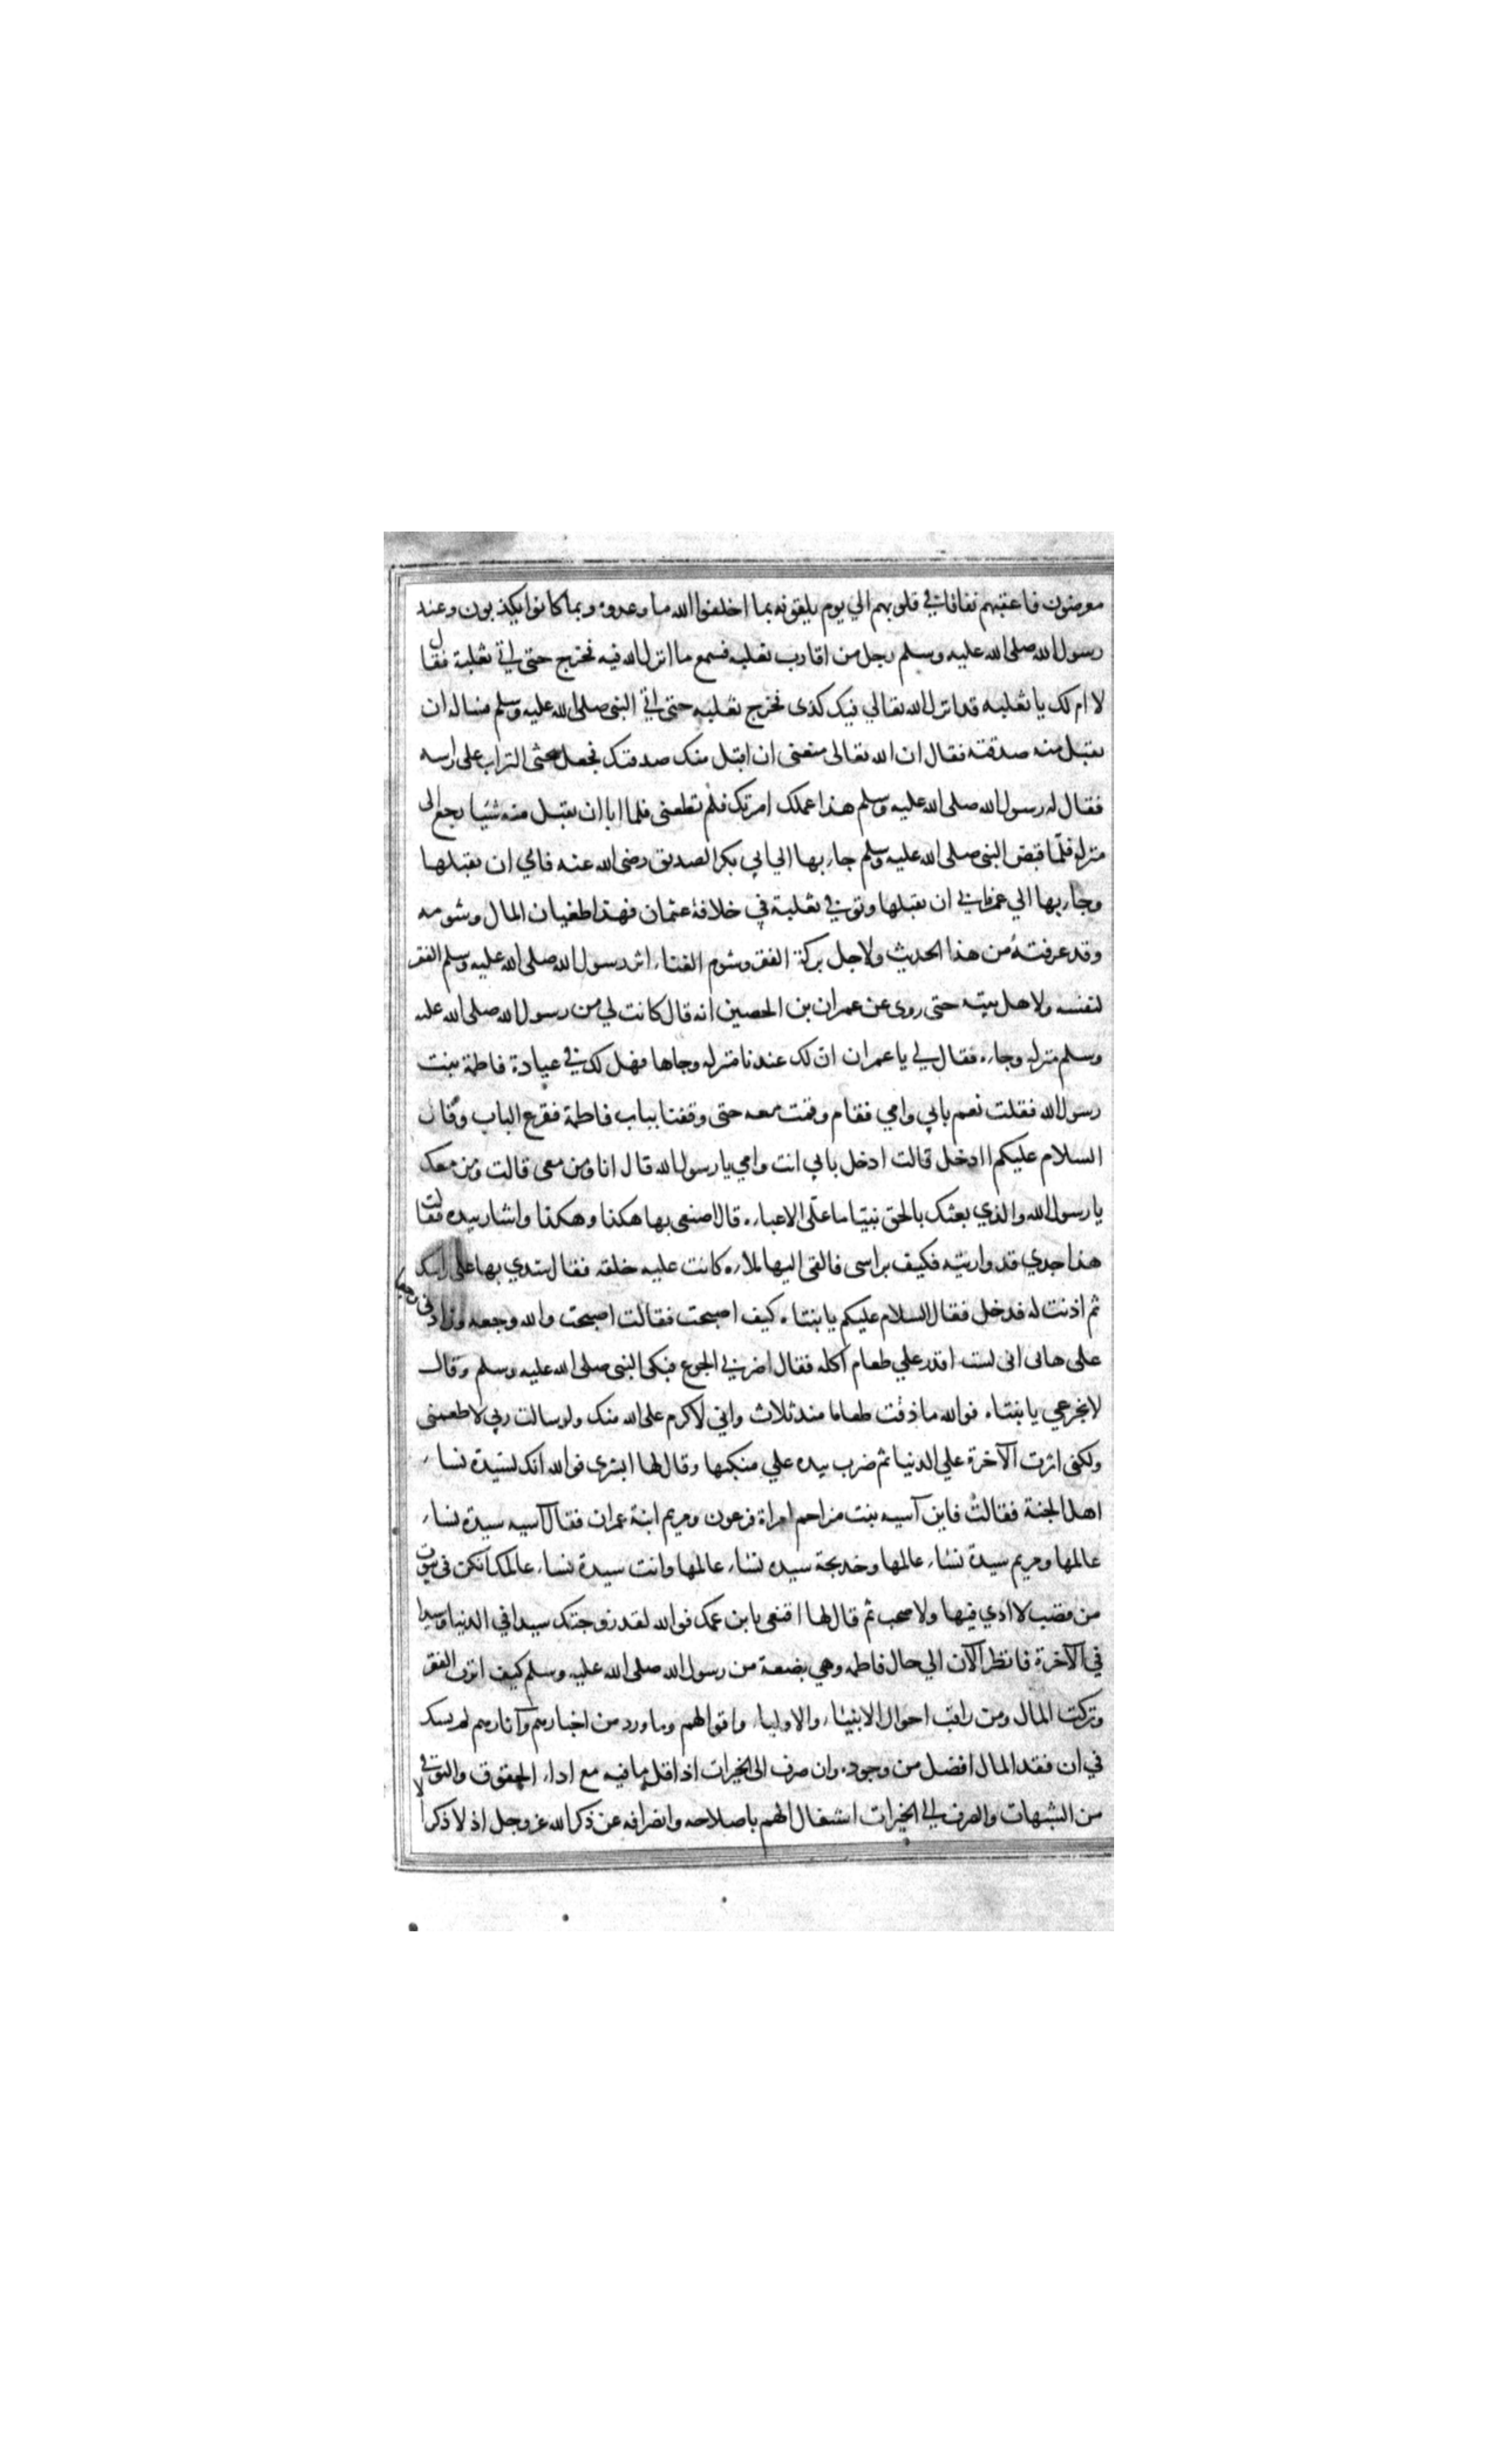 معرضون فاعقبهم نفاقا في قلوبهم الي يوم يلقونه بما اخلفوا الله ما وعدوه وبما كانوا يكذبون وعند
رسول الله صلى الله عليه وسلم رجل من اقارب ثعلبه فسمع ما انزل الله فيه فخرج حتى اتي ثعلبة فقال
لا ام لك يا ثعلبه قد انزل الله تعالي فيك كذى فخرج ثعلبه حتى اتي النبي صلى الله عليه وسلم فساله ان
يقبل منه صدقته فقال ان الله تعالى منعنى ان اقبل منك صدقتك فجعل يحثى التراب على راسه
فقال له رسول الله صلى الله عليه وسلم هذا عملك امرتك فلم تطعنى فلما ابا ان يقبل منه شيئا رجع الى
منزله فلما قبض النبى صلى الله عليه وسلم جاء بها الي ابي بكر الصديق رضى الله عنه فابي ان يقبلها
وجاء بها الي عمر فابي ان يقبلها وتوفي ثعلبة في خلافة عثمان فهذا طغيان المال وشومه
وقد عرفته من هذا الحديث ولاجل بركة الفقر وشوم الغناء اثر رسول الله صلى الله عليه وسلم الفقر
لنفسه ولاهل بيته حتى روى عن عمران بن الحصين انه قال كانت لي من رسول الله صلى الله عليه
وسلم منزله وجاه فقال لي يا عمران ان لك عندنا منزله وجاها فهل لك في عيادة فاطمة بنت
رسول الله فقلت نعم بابي وامي فقام وقمت معه حتى وقفنا بباب فاطمة فقرع الباب وقال
السلام عليكم اادخل قالت ادخل بابي انت وامي يا رسول الله قال انا ومن معى قالت ومن معك
يا رسول الله والذي بعثك بالحق نبيا ما على الا عباءه قال اصنعى بها هكذا وهكذا واشار بيده فقالت
هذا جسدي قد واريته فكيف براسى فالقى اليها ملاءه كانت عليه خلقه فقال شدي بها على راسك
ثم اذنت له فدخل فقال السلام عليكم يا بنتاه كيف اصبحت فقالت اصبحت والله وجعه وزادنى وجعا
على مابى انى لست اقدر علي طعام اكله فقال اضر بي الجوع فبكى النبى صلى الله عليه وسلم وقال
لا تجزعي يا بنتاه فوالله ما ذقت طعاما منذ ثلاث واني لاكرم على الله منك ولو سالت ربي لاطعمنى
ولكنى اثرت الآخرة علي الدنيا ثم ضرب بيده علي منكبها وقال لها ابشرى فوالله انك لسيدة نساء
اهل الجنة فقالت فاين آسيه بنت مزاحم امراة فرعون ومريم ابنة عمران فقال آسيه سيدة نساء
عالمها ومريم سيدة نساء عالمها وخديجة سيده نساء عالمها وانت سيدة نساء عالمك انكن فى بيوت
من قصب لا اذي فيها ولا صخب ثم قال لها اقنعى بابن عمك فوالله لقد زوجتك سيدا في الدنيا وسيدا
في الآخرة فانظر الآن الي حال فاطمه وهي بضعة من رسول الله صلى الله عليه وسلم كيف اثرت الفقر
وتركت المال ومن راقب احوال الانبياء والاولياء واقوالهم وما ورد من اخبارهم وآثارهم لم يشك
في ان فقد المال افضل من وجوده وان صرف الى الخيرات اذ اقل ما فيه مع اداء الحقوق والتوقي
من الشبهات والصرف الي الخيرات اشتغال الهم باصلاحه وانصرافه عن ذكر الله عز وجل اذ لا ذكر الا